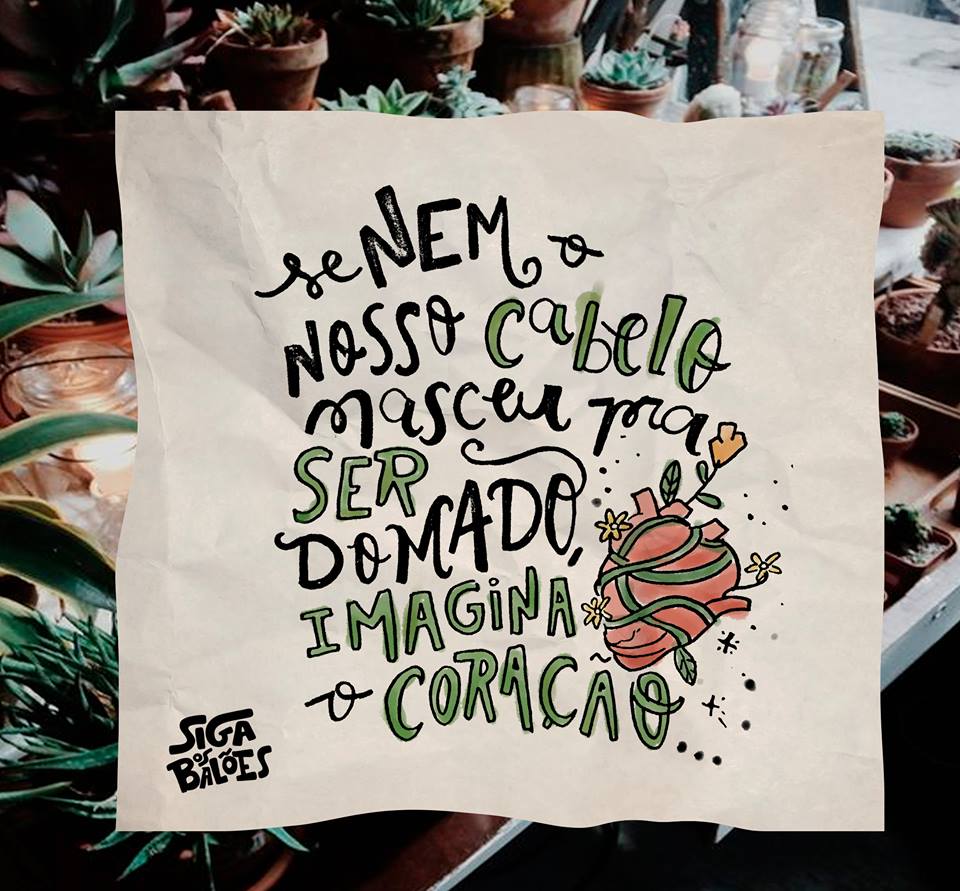 se NEM o
NOSSO cabelo
nasceu pra
SER
DOMADO,
IMAGINA
o CORAÇÃO...
SIGA
OS
BALÕES